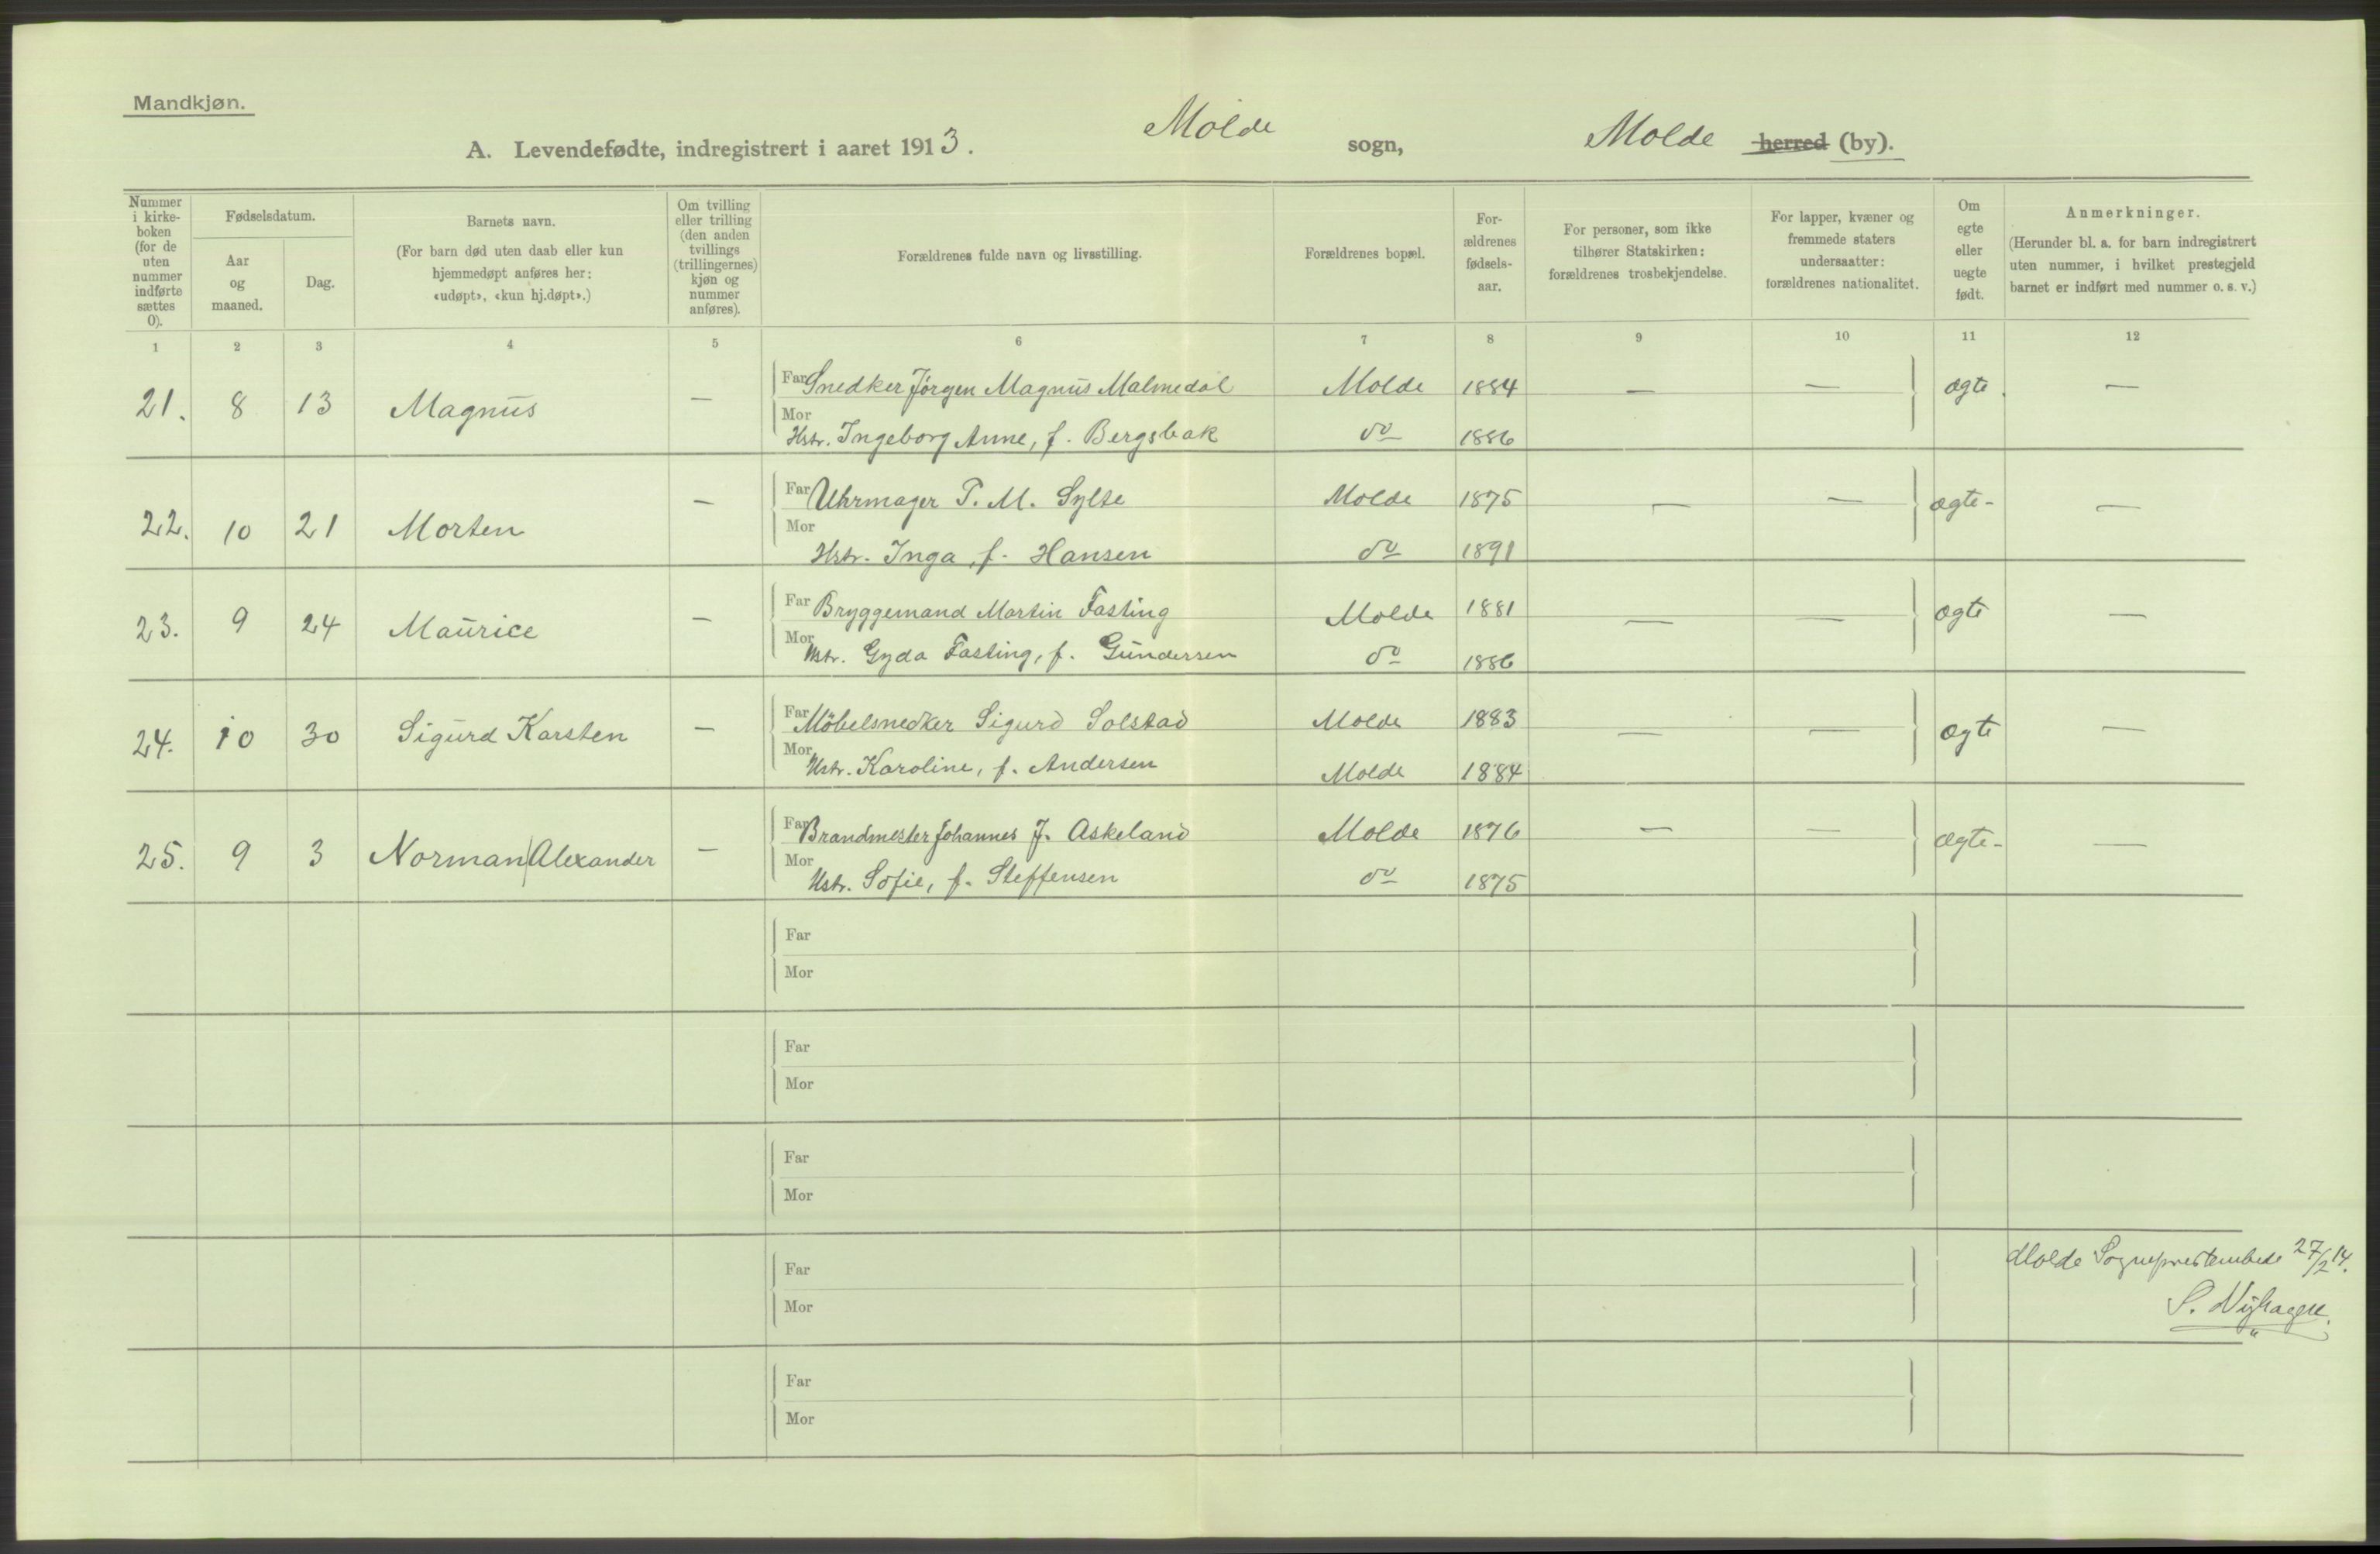 Mandkjøn.
A. Levendefødte, indregistrert i aaret 1913. Molde sogn, Molde herred (by).
Nummer i kirke-boken (for de uten nummer indførte sættes 0).
Fødselsdatum.
Aar og maaned.
Dag.
Barnets navn.
(For barn død uten daab eller kun hjemmedøpt anføres her: «udøpt», «kun hj.døpt».)
Om tvilling eller trilling (den anden tvillings (trillingernes) kjøn og nummer anføres).
Forældrenes fulde navn og livsstilling.
Forældrenes bopæl.
For-ældrenes fødsels-aar.
For personer, som ikke tilhører Statskirken: forældrenes trosbekjendelse.
For lapper, kvæner og fremmede staters undersaatter: forældrenes nationalitet.
Om egte eller uegte født.
Anmerkninger.
(Herunder bl. a. for barn indregistrert uten nummer, i hvilket prestegjeld barnet er indført med nummer o. s. v.)
1 2 3 4 5 6 7 8 9 10 11 12
21. 8 13 Magnus — Far Snedker Jørgen Magnus Malmedal Molde 1884 — — ægte. —
Mor Hstr. Ingeborg Anne, f. Bergsbak do 1886
22. 10 21 Morten — Far Uhrmager P. M. Sylte Molde 1875 — — ægte- —
Mor Hstr. Inga, f. Hansen do 1891
23. 9 24 Maurice — Far Bryggemand Martin Fasting Molde 1881 — — ægte —
Mor Hstr. Gyda Fasting, f. Gundersen do 1886
24. 10 30 Sigurd Karsten — Far Möbelsnedker Sigurd Solstad Molde 1883 — — ægte —
Mor Hstr. Karoline, f. Andersen Molde 1884
25. 9 3 Norman Alexander — Far Brandmester Johannes J. Askeland Molde 1876 — — ægte- —
Mor Hstr. Sofie, f. Steffensen do 1875
Far
Mor
Far
Mor
Far
Mor
Far
Mor
Molde Sogneprestembede 27/2 14.
Far
Mor